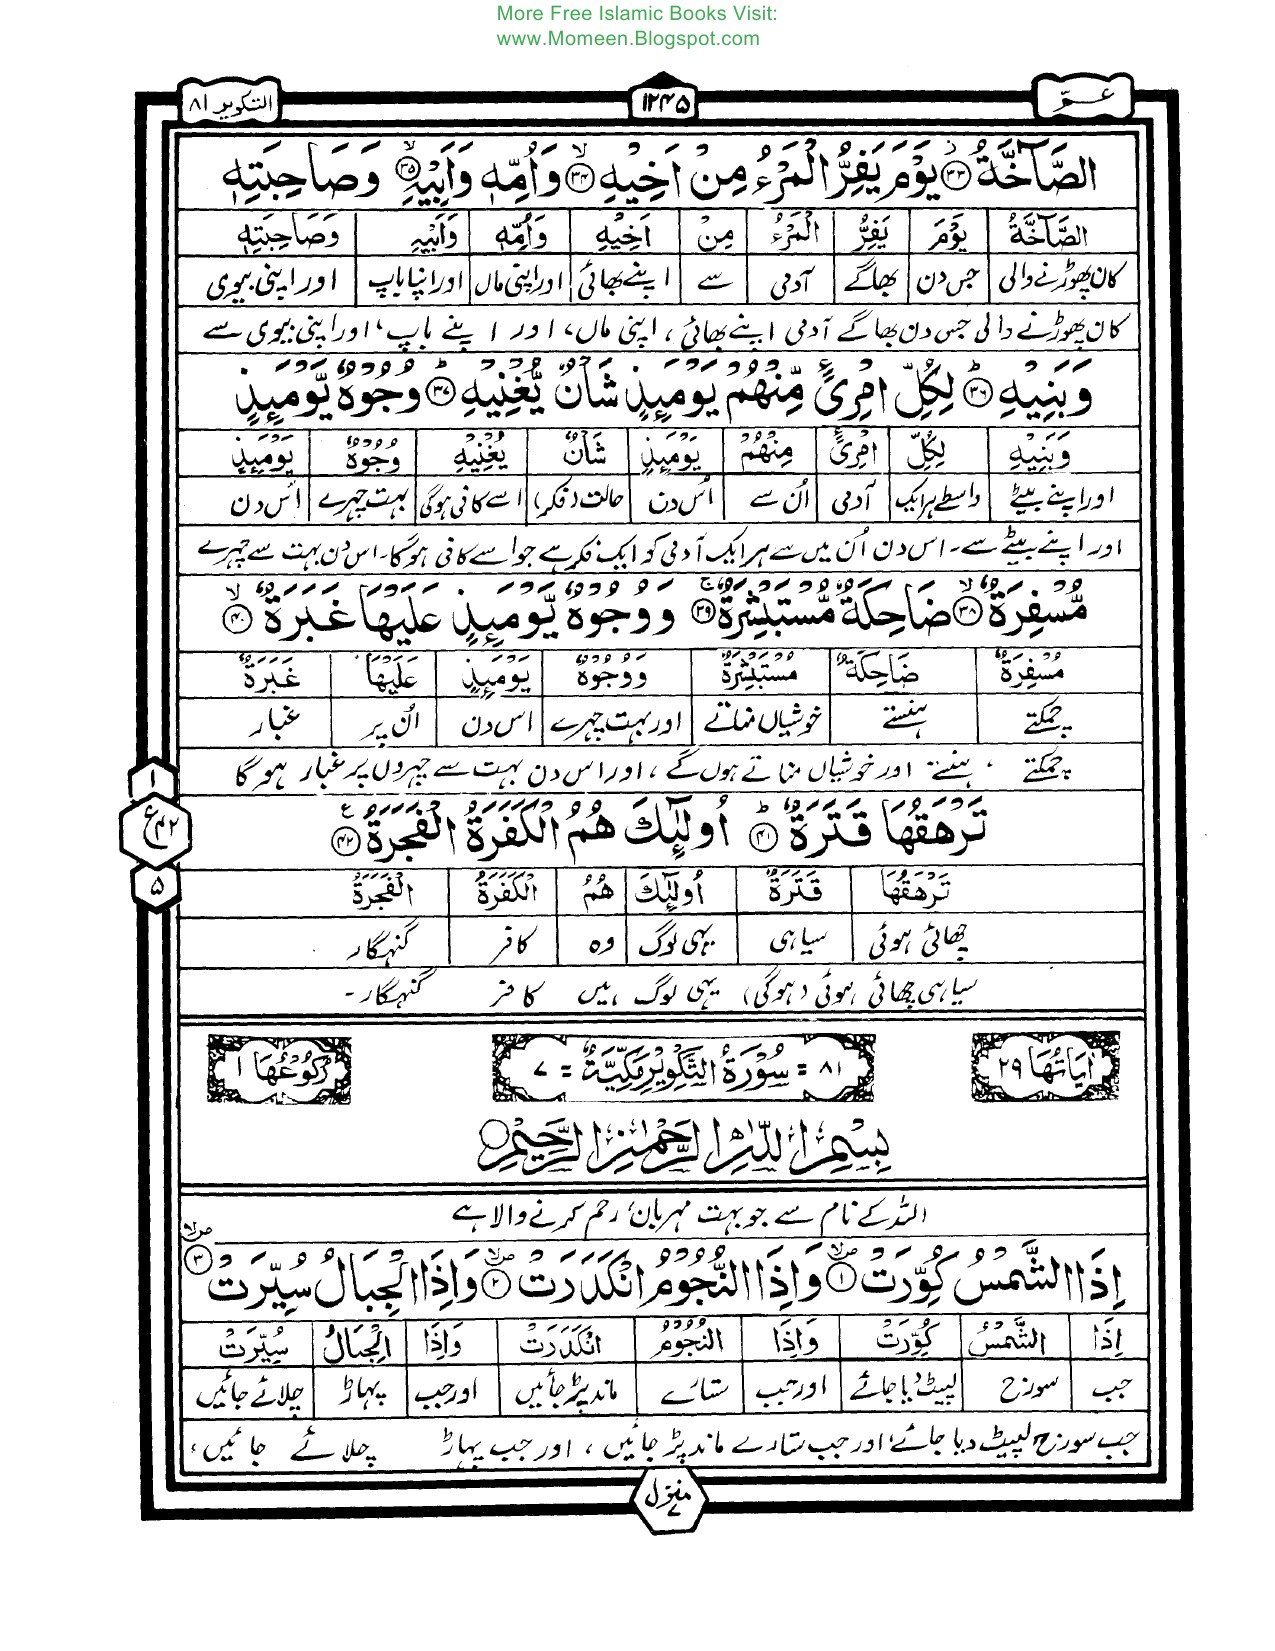 More Free Islamic Books Visit:
www.Momeen.Blogspot.com
عـمّ
۱۲۴۵
التکویر ۸۱
الصَّآخَّةُ ﴿۳۳﴾ یَوْمَ یَفِرُّ الْمَرْءُ مِنْ اَخِیْهِ ﴿۳۴﴾ وَاُمِّهٖ وَاَبِیْهِ ﴿۳۵﴾ وَصَاحِبَتِهٖ
الصَّآخَّةُ یَوْمَ یَفِرُّ الْمَرْءُ مِنْ اَخِیْهِ وَاُمِّهٖ وَاَبِیْهِ وَصَاحِبَتِهٖ
کان پھوڑنے والی جس دن بھاگے آدمی سے اپنے بھائی اور اپنی ماں اور اپنا باپ اور اپنی بیوی
کان پھوڑنے والی جس دن بھاگے آدمی اپنے بھائی، اپنی ماں، اور اپنے باپ، اور اپنی بیوی سے
وَبَنِیْهِ ﴿۳۶﴾ لِکُلِّ امْرِیًٔ مِّنْهُمْ یَوْمَئِذٍ شَاْنٌ یُّغْنِیْهِ ﴿۳۷﴾ وُجُوْهٌ یَّوْمَئِذٍ
وَبَنِیْهِ لِکُلِّ امْرِیًٔ مِنْهُمْ یَوْمَئِذٍ شَاْنٌ یُغْنِیْهِ وُجُوْهٌ یَوْمَئِذٍ
اور اپنے بیٹے واسطے ہر ایک آدمی اُن سے اُس دن حالت (فکر) اسے کافی ہوگی بہت چہرے اُس دن
اور اپنے بیٹے سے۔ اس دن اُن میں سے ہر ایک آدمی کو ایک فکر ہے جو اسے کافی ہوگا۔ اس دن بہت سے چہرے
مُّسْفِرَةٌ ﴿۳۸﴾ ضَاحِکَةٌ مُّسْتَبْشِرَةٌ ﴿۳۹﴾ وَوُجُوْهٌ یَّوْمَئِذٍ عَلَیْهَا غَبَرَةٌ ﴿۴۰﴾
مُسْفِرَةٌ ضَاحِکَةٌ مُسْتَبْشِرَةٌ وَوُجُوْهٌ یَوْمَئِذٍ عَلَیْهَا غَبَرَةٌ
چمکتے ہنستے خوشیاں مناتے اور بہت چہرے اس دن اُن پر غبار
چمکتے، ہنستے اور خوشیاں مناتے ہوں گے، اور اس دن بہت سے چہروں پر غبار ہوگا
تَرْهَقُهَا قَتَرَةٌ ﴿۴۱﴾ اُولٰٓئِکَ هُمُ الْکَفَرَةُ الْفَجَرَةُ ﴿۴۲﴾
۱
ع ۴۲
۵
تَرْهَقُهَا قَتَرَةٌ اُولٰٓئِکَ هُمُ الْکَفَرَةُ الْفَجَرَةُ
چھائی ہوئی سیاہی یہی لوگ وہ کافر گنہگار
سیاہی چھائی ہوئی (ہوگی) یہی لوگ ہیں کافر گنہگار۔
اٰیَاتُهَا ۲۹
۸۱ = سُوْرَةُ التَّکْوِیْرِ مَکِّیَّةٌ = ۷
رُکُوْعُهَا ۱
بِسْمِ اللّٰهِ الرَّحْمٰنِ الرَّحِیْمِ
اللہ کے نام سے جو بہت مہربان، رحم کرنے والا ہے
اِذَا الشَّمْسُ کُوِّرَتْ ﴿۱﴾ وَاِذَا النُّجُوْمُ انْکَدَرَتْ ﴿۲﴾ وَاِذَا الْجِبَالُ سُیِّرَتْ ﴿۳﴾
اِذَا الشَّمْسُ کُوِّرَتْ وَاِذَا النُّجُوْمُ انْکَدَرَتْ وَاِذَا الْجِبَالُ سُیِّرَتْ
جب سورج لپیٹ دیا جائے اور جب ستارے ماند پڑ جائیں اور جب پہاڑ چلائے جائیں
جب سورج لپیٹ دیا جائے، اور جب ستارے ماند پڑ جائیں، اور جب پہاڑ چلائے جائیں،
منزل ۷